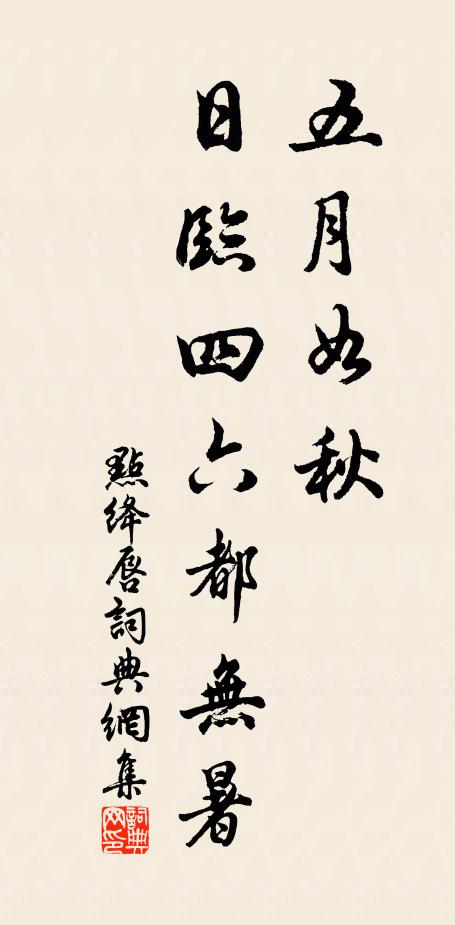 五月如秋
日臨四六都無暑
點絳唇詞典網集
詞典
网印